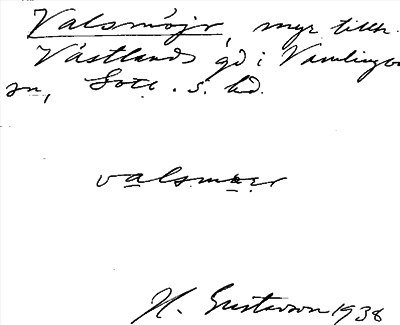 Valsmöjr, myr tillh.
Västlands gd i Vamlingbo
sn, Gotl. s. hd.
valsmɯer
H. Gustavson 1938